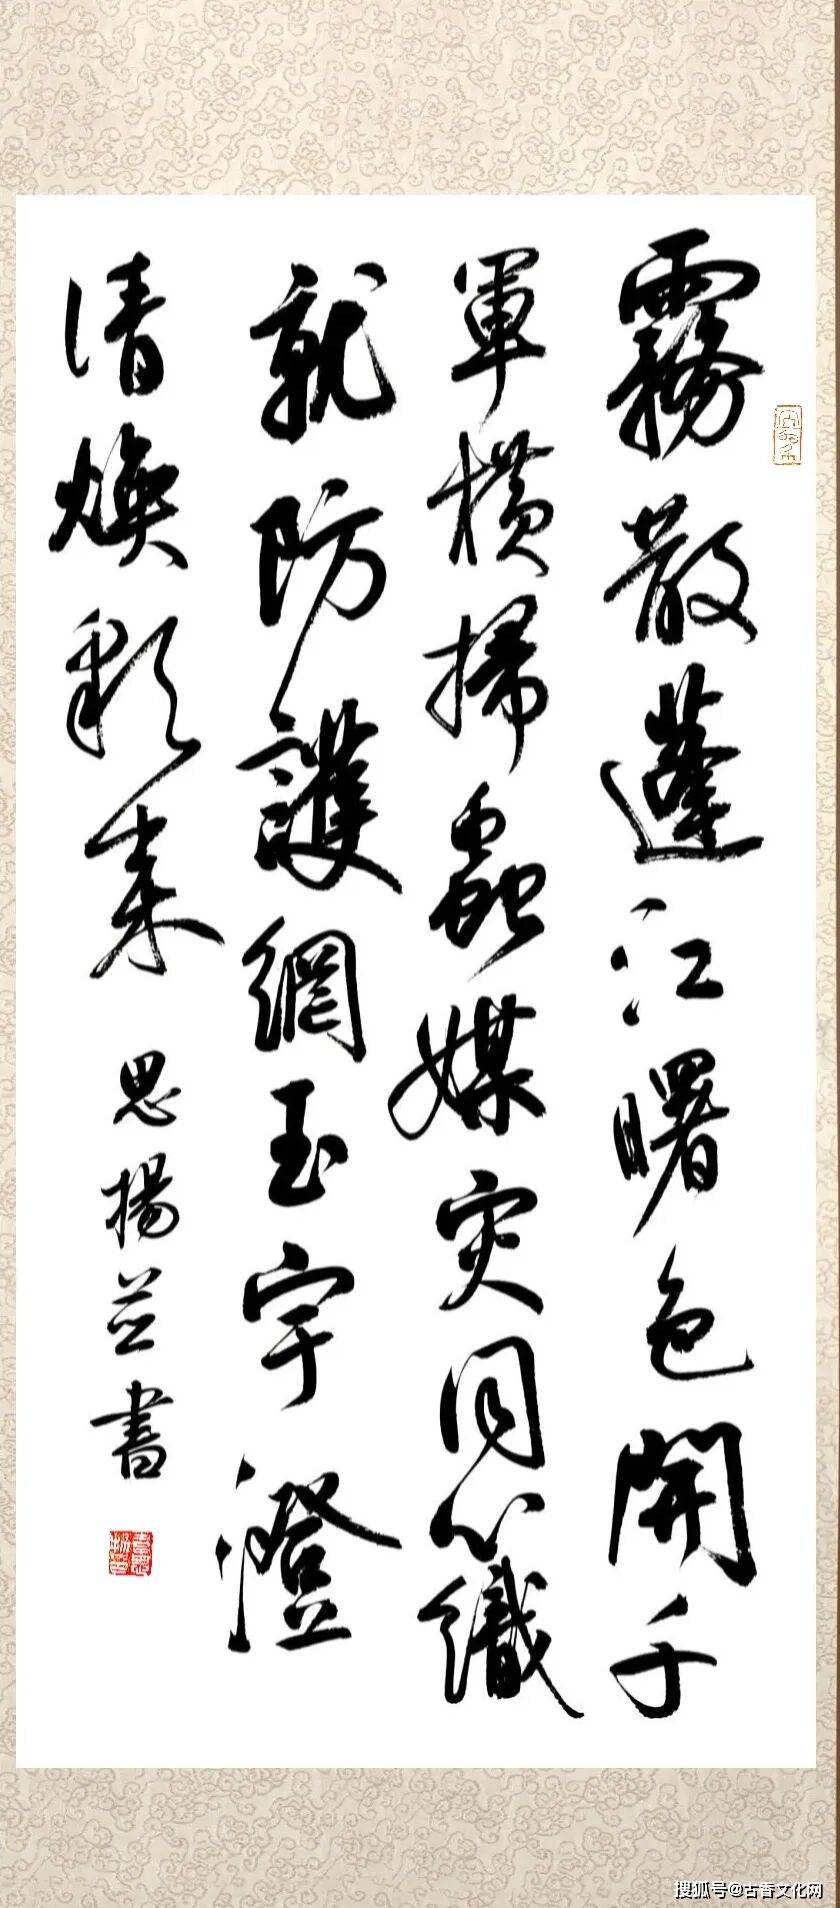 霧散蓬江曙色開千
軍橫掃蟲媒災同心織
就防護網玉宇澄
清煥彩來
思揚並書
搜狐号@古香文化网